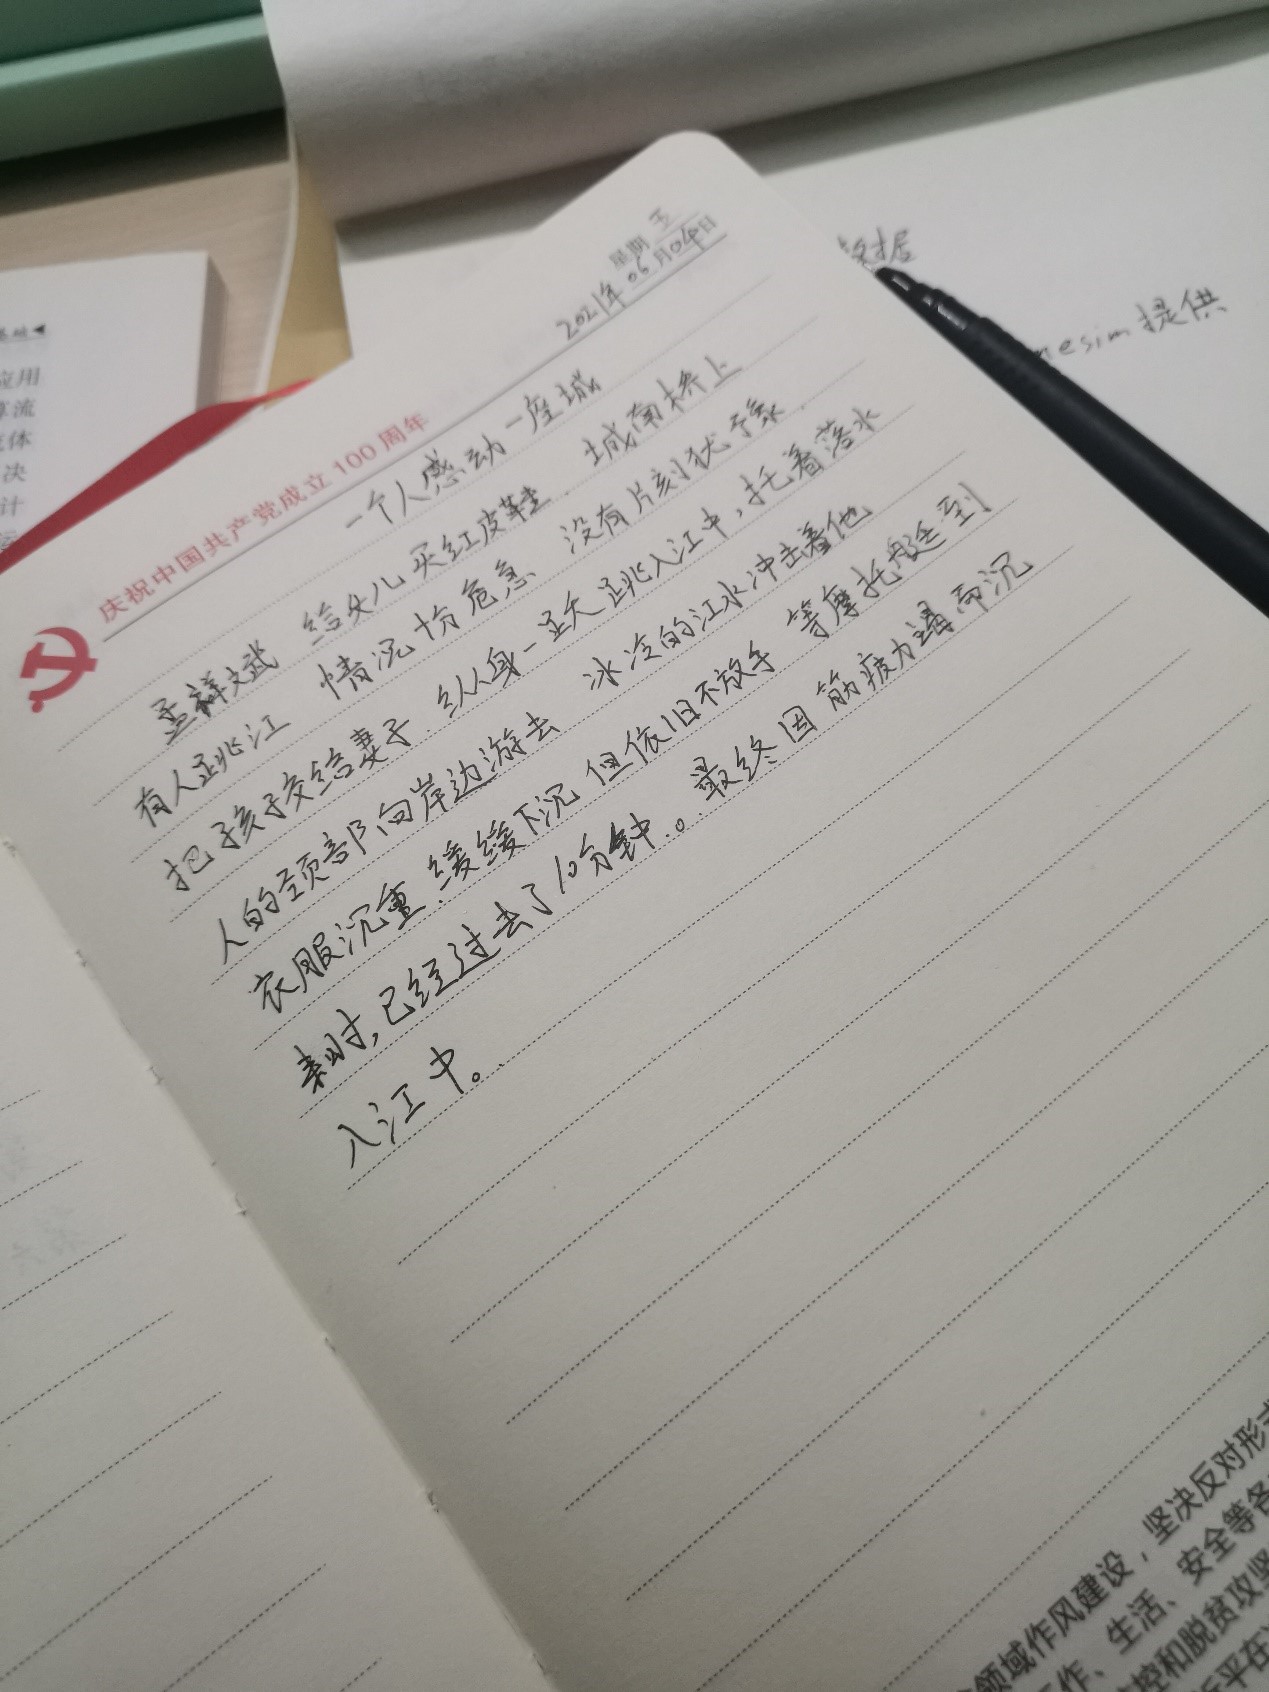 星期 五
2021年06月04日
庆祝中国共产党成立100周年
一个人感动一座城
孟祥斌 给女儿买红皮鞋 城南桥上
有人跳江 情况十份危急 没有片刻犹予象
把孩子交给妻子 纵身一跃跳入江中,托着落水
人的颈部向岸边游去 冰冷的江水冲击着他
衣服沉重 缓缓下沉 但依旧不放手 等摩托艇到
来时,已经过去了10分钟。最终因筋疲力竭而沉
入江中。
数据
esim提供
应用
算流
流体
决
计
运
领域作风建设,坚决反对形式
作、生活、安全等各
控和脱贫攻坚
近平在